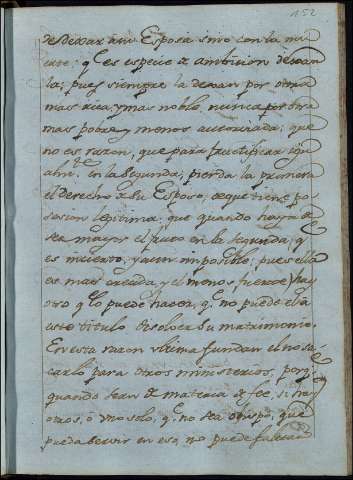 152
de dexar a su Esposa sino con la mu
erte; q̃ es especie de ambicion dexar
la; pues siempre la dexan por otra
mas rica, y mas noble, nunca por otra
mas pobre, y menos autorizada; que
no es razon, que para fructificar igu
alm.te en la segunda; pierda la primera
el derecho a su Esposo, de que tiene po
sesion legitima; que quando haya de
ser mayor el fruto en la segunda, q̃
es incierto, y aun imposible; pues ella
es mas y el menos hay
otro q̃ lo puede hacer, q̃ no puede el a
este titulo disolver su matrimonio.
En esta razon ultima fundan el no sa
carlo para otros ministerios, porq̃
quando sean de materia de fee, si hay
otros, ó uno solo, q̃ no sea obispo, que
pueda servir en eso, no puede